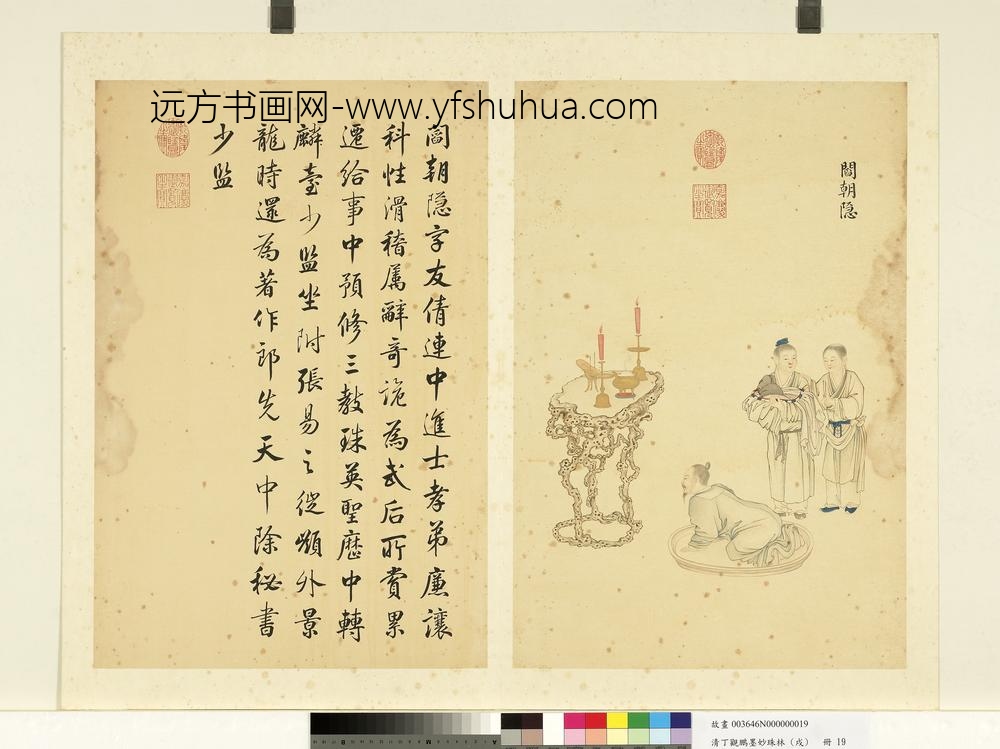 远方书画网-www.yfshuhua.com
閻朝隐
閻朝隐字友倩連中進士孝弟廉讓
科性滑稽属辭奇詭為武后所賞累
遷給事中預修三教珠英聖歷中轉
麟臺少監坐附張易之徙嶺外景
龍時還為著作郎先天中除秘書
少監
故畫 003646N000000019
清丁觀鵬墨妙珠林（戌） 冊 19